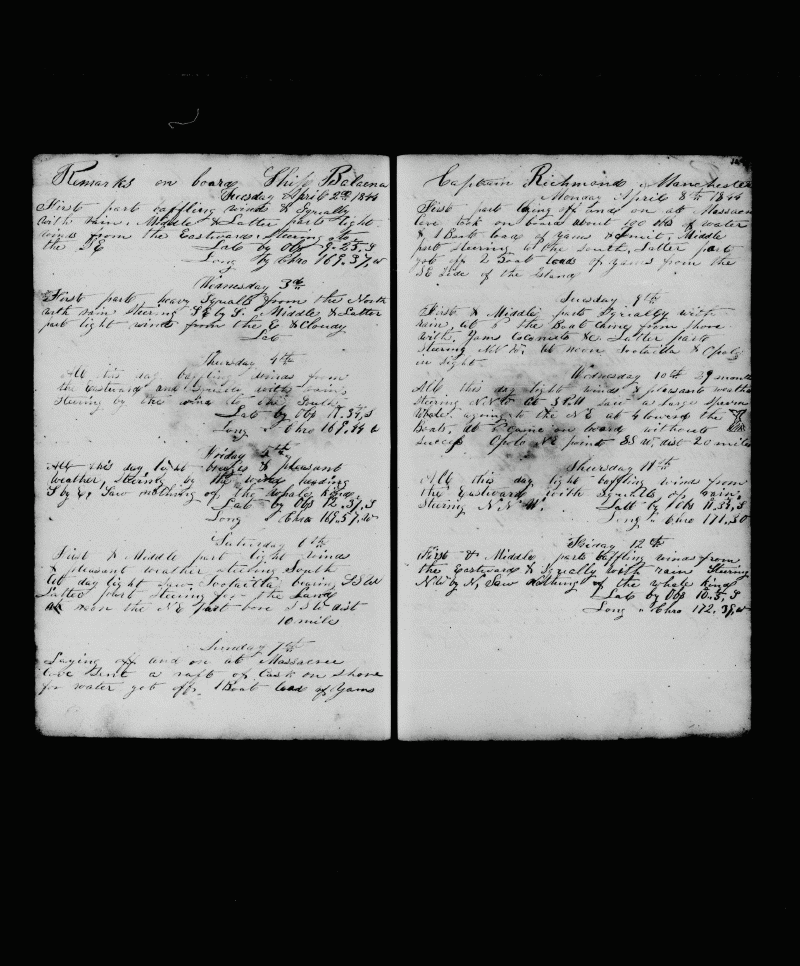 Remarks on board Ship Balaena
Tuesday April 2nd 1844
First part baffling winds & Squally
with rain, Middle & Latter parts light
winds from the Eastward, Steering to
the SE Lat by Obs 9.25, S
Long by Chro 169.37, W
Wednesday 3rd
First part, heavy Squalls from the North
with rain Steering SE by S. Middle & Latter
part light winds from the E & Cloudy
Lat
Thursday 4th
All this day baffling winds from
the Eastward and Squally with rain,
Steering by the wind to the South,
Lat by Obs 11.34, S
Long " Chro 168.44 W
Friday 5th
All this day, light breezes & pleasant
weather, Steering by the wind heading
S by E, Saw nothing of the whale kind,
Lat by Obs 12.37, S
Long " Chro 167.57, W
Saturday 6th
First & Middle part light winds
& pleasant weather steering South
At day light saw Tootuilla bearing SSW
Latter part steering for the Land
At noon the NE part bore SSW dist
10 miles
Sunday 7th
Laying off and on at Massacree
Cove Sent a raft of Cask on shore
for water got off, 1 Boat load of Yams
Captain Richmond, Manchester
Monday April 8th 1844
First part laying off and on at Massacre
Cove took on board about 100 bbls of water
& 1 Boat load of Yams & fruit, Middle
part steering to the South, Latter part
got off 2 Boat loads of yams from the
SE Side of the Island
Tuesday 9th
First & Middle parts Squally with
rain, at 5 the Boat came from shore
with, Yams Cocanuts &c Latter part
steering NW. At noon Tootuilla & Opolo
in sight
Wednesday 10th 29 months
All this day light winds & pleasant weather
steering At 3 PM saw a large Sperm
Whale, going to the NE at 4 lowered the
Boats, at came on board without
success Opolo NE point SSW, dist 20 miles
Thursday 11th
All this day light baffling winds from
the Eastward with Squalls of rain,
Steering N.N.W. Latt by Obs 11.33, S
Long " Chro 171.30
Friday 12th
First & Middle, parts baffling winds from
the Eastward & Squally with rain Steering
NW by N, Saw nothing of the whale kind
Lat by Obs 10.5, S
Long " Chro 172.39, W